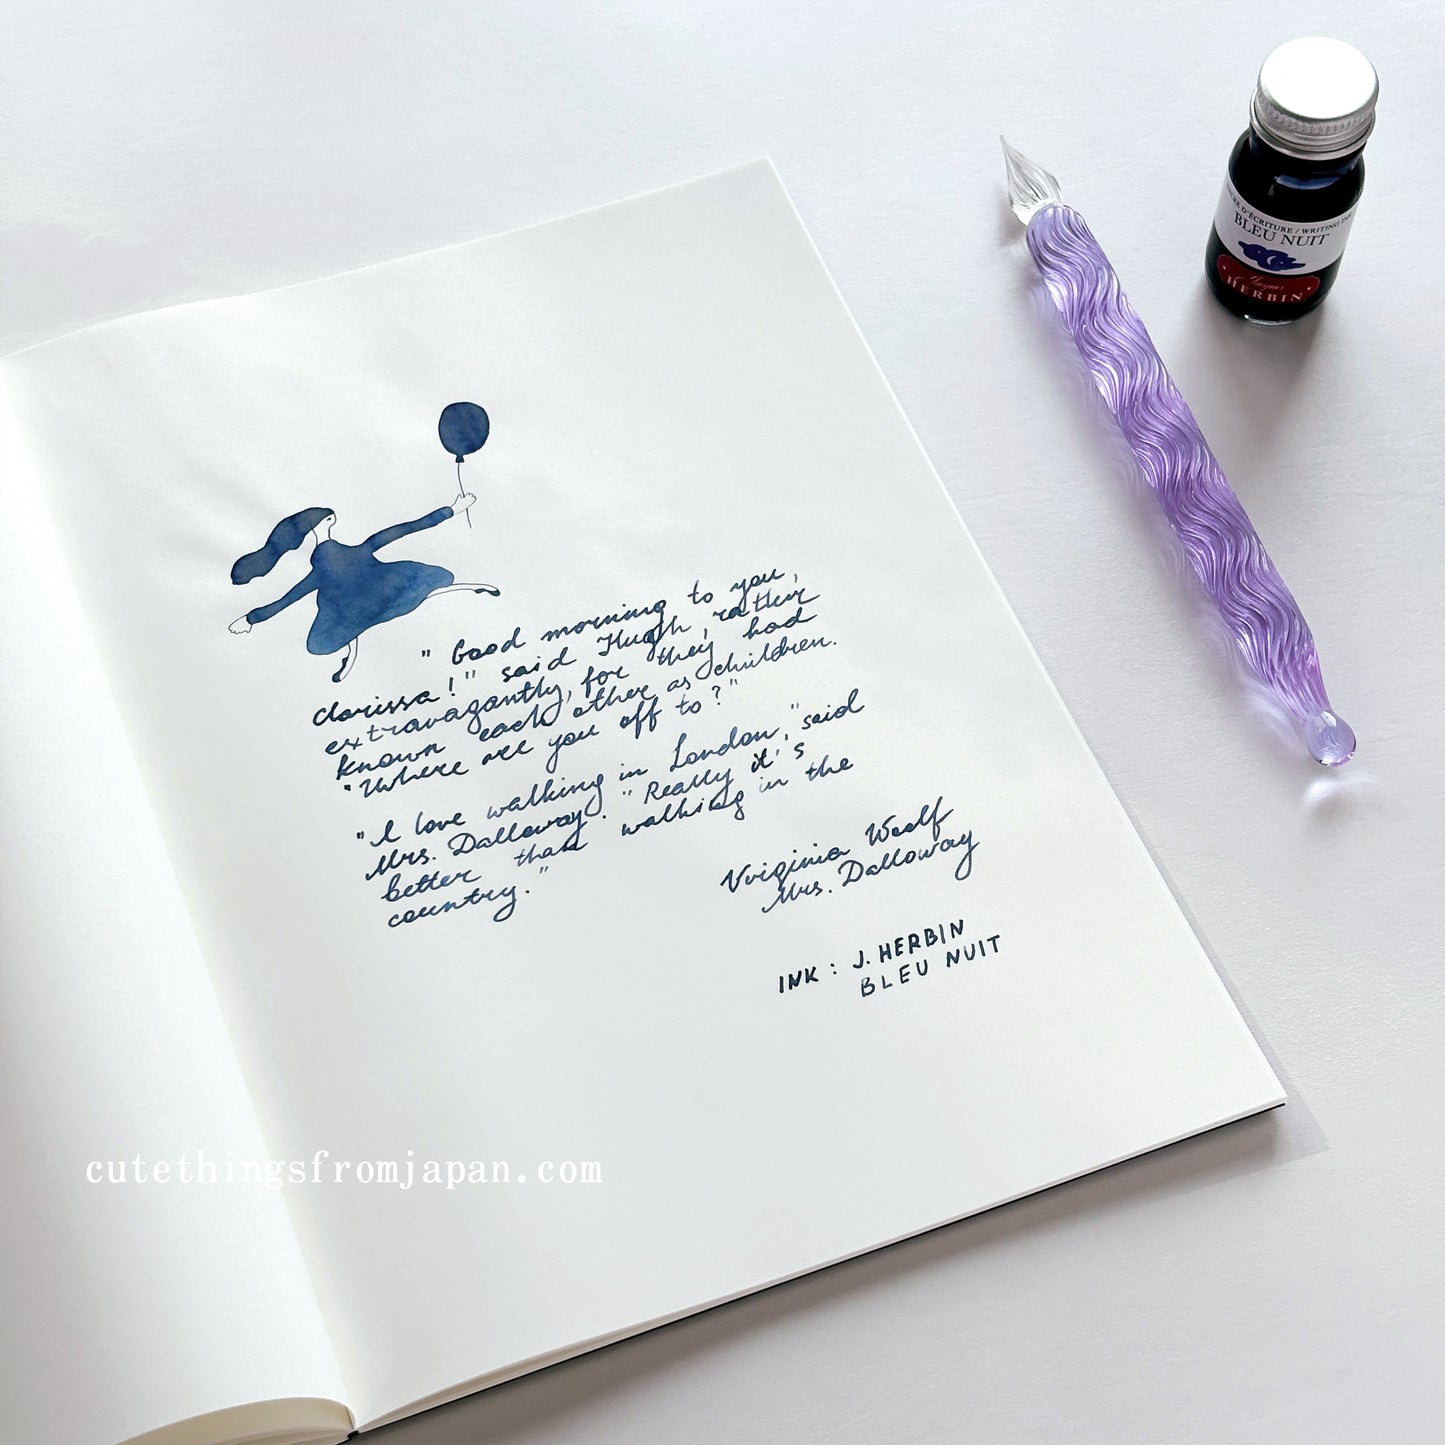 " Good morning to you,
clarissa!" said Hugh, rather
extravagantly, for they had
known each other as children.
"Where are you off to?"
"I love walking in London," said
Mrs. Dalloway. "Really it's
better than walking in the
country."
Virginia Woolf
Mrs. Dalloway
INK: J. HERBIN
BLEU NUIT
D'ÉCRITURE / WRITING INK
BLEU NUIT
Jacques
HERBIN
cutethingsfromjapan.com